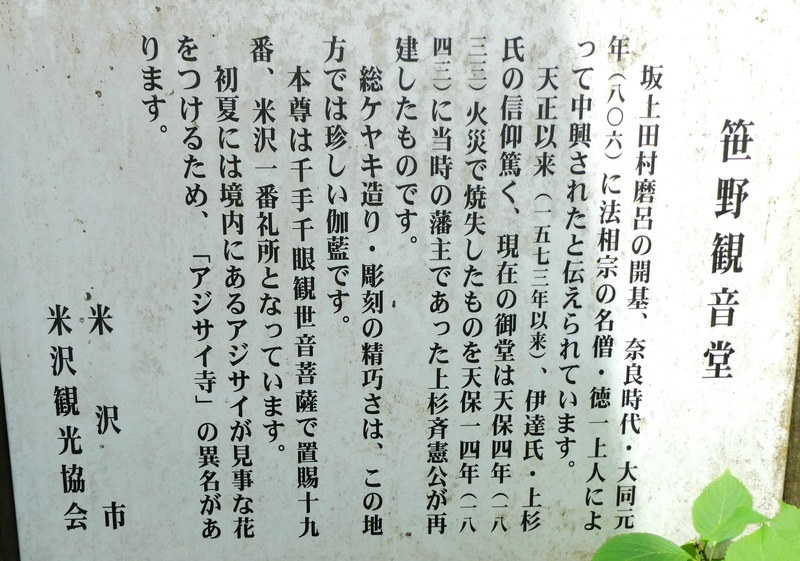 笹野観音堂
坂上田村磨呂の開基、奈良時代・大同元
年（八〇六）に法相宗の名僧・徳一上人によ
って中興されたと伝えられています。
天正以来（一五七三年以来）、伊達氏・上杉
氏の信仰篤く、現在の御堂は天保四年（一八
三三）火災で焼失したものを天保一四年（一八
四三）に当時の藩主であった上杉斉憲公が再
建したものです。
総ケヤキ造り・彫刻の精巧さは、この地
方では珍しい伽藍です。
本尊は千手千眼観世音菩薩で置賜十九
番、米沢一番礼所となっています。
初夏には境内にあるアジサイが見事な花
をつけるため、「アジサイ寺」の異名があ
ります。
米沢市
米沢観光協会